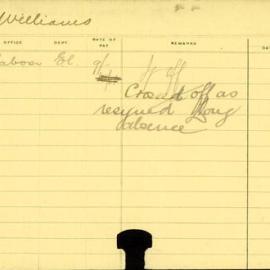 Williams
OFFICE DEPT RATE OF PAY REMARKS
Labour El. 9/-
Crossed off as
resigned long
absence